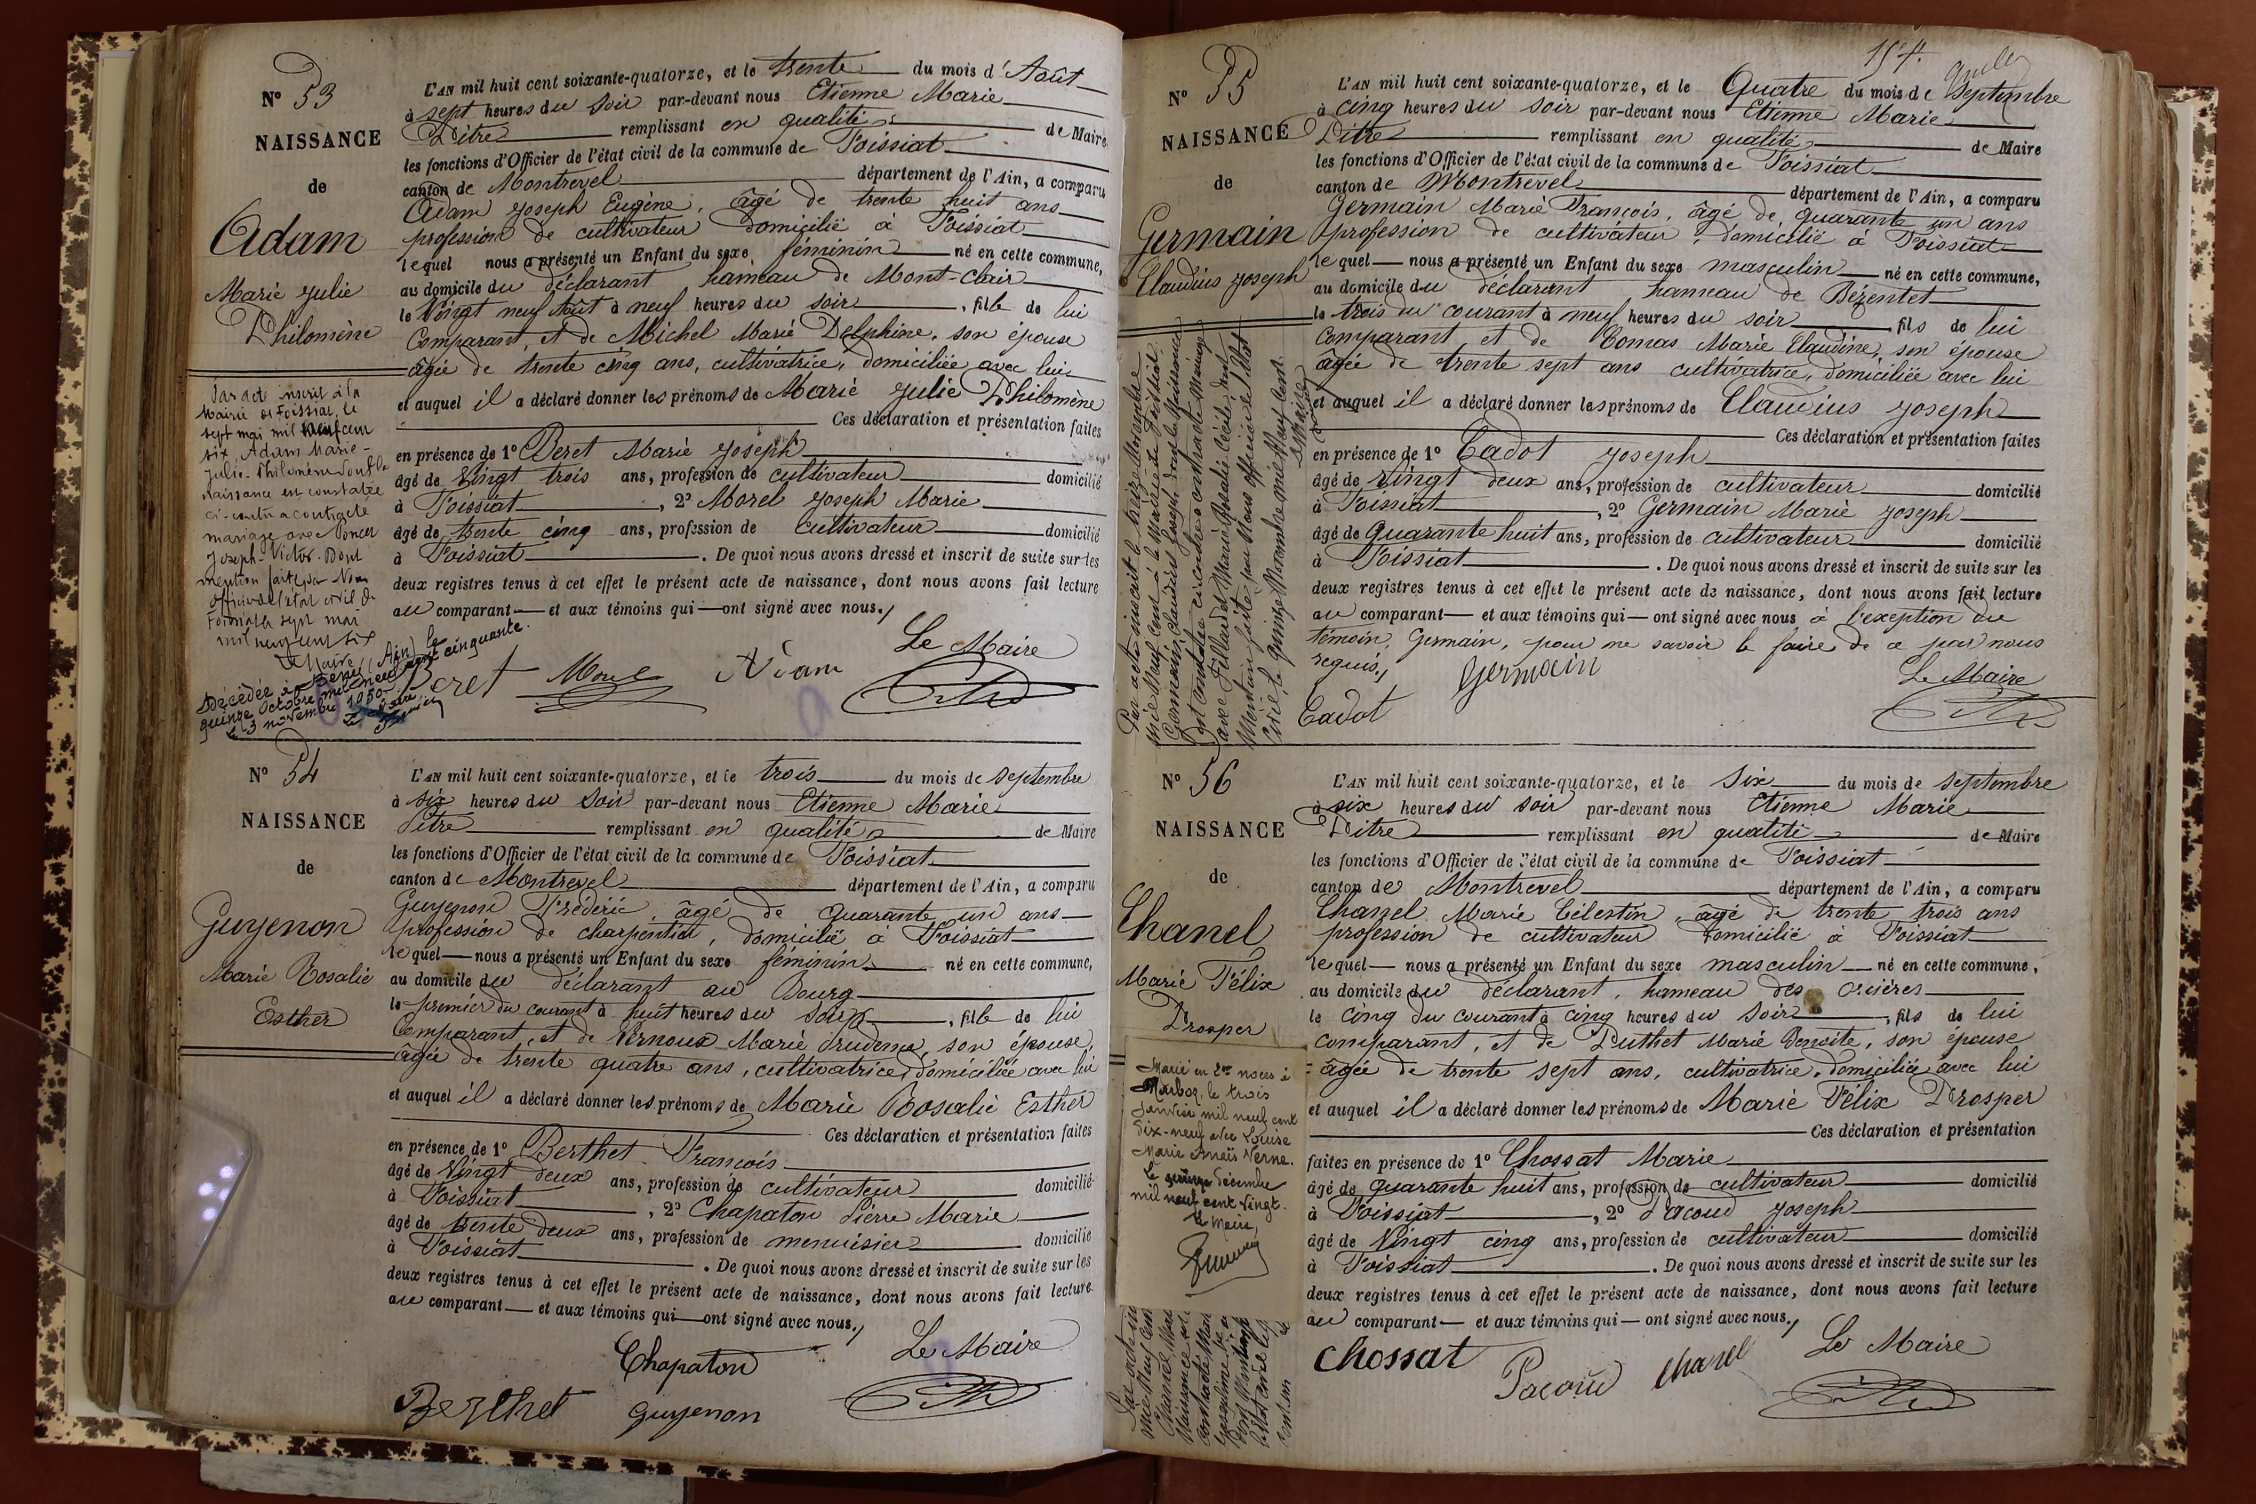 N° 53
NAISSANCE
de
Adam
Marie Julie
Philomène
Par act inscrit à la
Mairie de Foissiat, le
sept mai mil neuf cent
six, Adam Marie-
Julie-Philomène dont la
naissance est constatée
ci-contre a contracté
mariage avec Poncet
Joseph-Victor. Dont
mention faite par Nous
officier de l'état civil de
Foissiat le sept mai
mil neuf cent six
Le Maire
Décédée à (Ain) le
quinze Octobre mil neuf cent cinquante.
Le 3 novembre 1950
L'AN mil huit cent soixante-quatorze, et le trente du mois d'Août
à sept heures du soir par-devant nous Etienne Marie
Pitre remplissant en qualité de Maire
les fonctions d'Officier de l'état civil de la commune de Foissiat
canton de Montrevel département de l'Ain, a comparu
Adam Joseph Eugène, âgé de trente huit ans
profession de cultivateur domicilié à Foissiat
lequel nous a présenté un Enfant du sexe féminin né en cette commune,
au domicile du déclarant hameau de Mont-Clair
le vingt neuf Août à neuf heures du soir, fille de lui
Comparant, et de Michel Marie Delphine, son épouse
âgée de trente cinq ans, cultivatrice, domiciliée avec lui
et auquel il a déclaré donner les prénoms de Marie Julie Philomène
Ces déclaration et présentation faites
en présence de 1° Beret Marie Joseph
âgé de vingt trois ans, profession de cultivateur domicilié
à Foissiat, 2° Morel Joseph Marie
âgé de trente cinq ans, profession de cultivateur domicilié
à Foissiat. De quoi nous avons dressé et inscrit de suite sur les
deux registres tenus à cet effet le présent acte de naissance, dont nous avons fait lecture
au comparant et aux témoins qui ont signé avec nous.
Le Maire
Beret Morel Adam
N° 54
NAISSANCE
de
Guyenon
Marie Rosalie
Esther
L'AN mil huit cent soixante-quatorze, et le trois du mois de Septembre
à six heures du soir par-devant nous Etienne Marie
Pitre remplissant en qualité de Maire
les fonctions d'Officier de l'état civil de la commune de Foissiat
canton de Montrevel département de l'Ain, a comparu
Guyenon Frédéric, âgé de quarante un ans
profession de charpentier, domicilié à Foissiat
lequel nous a présenté un Enfant du sexe féminin né en cette commune,
au domicile du déclarant au Bourg
le premier du courant à huit heures du soir, fille de lui
Comparant, et de Vernoux Marie Prudence, son épouse,
âgée de trente quatre ans, cultivatrice, domiciliée avec lui
et auquel il a déclaré donner les prénoms de Marie Rosalie Esther
Ces déclaration et présentation faites
en présence de 1° Berthet François
âgé de vingt deux ans, profession de cultivateur domicilié
à Foissiat, 2° Chapaton Pierre Marie
âgé de trente deux ans, profession de menuisier domicilié
à Foissiat. De quoi nous avons dressé et inscrit de suite sur les
deux registres tenus à cet effet le présent acte de naissance, dont nous avons fait lecture
au comparant et aux témoins qui ont signé avec nous.
Chapaton Le Maire
Berthet guyenon
N° 55
NAISSANCE
de
Germain
Claudius Joseph
Par acte inscrit le treize Novembre
mil Neuf Cent à la Mairie de Foissiat
Germain Claudius Joseph dont la Naissance
est constatée ci-contre a contracté Mariage
avec Fillaudet Marie Rosalie Cécile dont
Mention faite par Nous officier de l'état
Civil, le quinze Novembre mil Neuf Cent.
Le Maire
L'AN mil huit cent soixante-quatorze, et le Quatre du mois de Septembre
à cinq heures du soir par-devant nous Etienne Marie
Pitre remplissant en qualité de Maire
les fonctions d'Officier de l'état civil de la commune de Foissiat
canton de Montrevel département de l'Ain, a comparu
Germain Marie François, âgé de quarante un ans
profession de cultivateur, domicilié à Foissiat
lequel nous a présenté un Enfant du sexe masculin né en cette commune,
au domicile du déclarant hameau de Bézentet
le trois du courant à neuf heures du soir, fils de lui
comparant et de Comas Marie Claudine, son épouse
âgée de trente sept ans cultivatrice, domiciliée avec lui
et auquel il a déclaré donner les prénoms de Claudius Joseph
Ces déclaration et présentation faites
en présence de 1° Cadot Joseph
âgé de vingt deux ans, profession de cultivateur domicilié
à Foissiat, 2° Germain Marie Joseph
âgé de quarante huit ans, profession de cultivateur domicilié
à Foissiat. De quoi nous avons dressé et inscrit de suite sur les
deux registres tenus à cet effet le présent acte de naissance, dont nous avons fait lecture
au comparant et aux témoins qui ont signé avec nous à l'exception du
témoin, Germain, pour ne savoir le faire de ce par nous
requis.
Le Maire
Cadot Germain
N° 56
NAISSANCE
de
Chanel
Marie Félix
Prosper
Marié en 2es noces à
Marboz, le trois
Janvier mil neuf cent
dix-neuf avec Louise
Marie Anaïs Verne.
Le quinze décembre
mil neuf cent vingt.
Le Maire,
L'AN mil huit cent soixante-quatorze, et le six du mois de Septembre
à six heures du soir par-devant nous Etienne Marie
Pitre remplissant en qualité de Maire
les fonctions d'Officier de l'état civil de la commune de Foissiat
canton de Montrevel département de l'Ain, a comparu
Chanel Marie Célestin, âgé de trente trois ans
profession de cultivateur domicilié à Foissiat
lequel nous a présenté un Enfant du sexe masculin né en cette commune,
au domicile du déclarant, hameau des
le cinq du courant à cinq heures du soir, fils de lui
comparant, et de Puthet Marie Benoite, son épouse
âgée de trente sept ans, cultivatrice, domiciliée avec lui
et auquel il a déclaré donner les prénoms de Marie Félix Prosper
Ces déclaration et présentation
faites en présence de 1° Chossat Marie
âgé de quarante huit ans, profession de cultivateur domicilié
à Foissiat, 2° Pacoud Joseph
âgé de vingt cinq ans, profession de cultivateur domicilié
à Foissiat. De quoi nous avons dressé et inscrit de suite sur les
deux registres tenus à cet effet le présent acte de naissance, dont nous avons fait lecture
au comparant et aux témoins qui ont signé avec nous.
Chossat Pacoud Chanel Le Maire